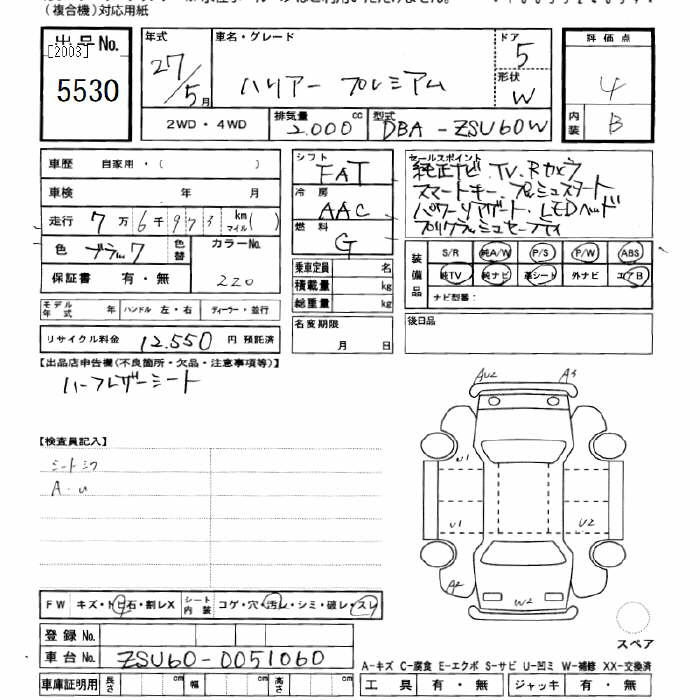 (複合機)対応用紙
出品No.
[2003]
5530
年式
27/5月
車名・グレード
ハリアー プレミアム
ドア
5
形状
W
評価点
4
内装
B
2WD・4WD
排気量
2.000cc
型式
DBA-ZSU60W
車歴 自家用・( )
車検 年 月
走行 7万6千973km(マイル)
色 ブラック
色替
カラーNo.
220
保証書 有・無
モデル年式 年 ハンドル 左・右 ディーラー・並行
リサイクル料金 12.550 円 預託済
シフト
FAT
冷房
AAC
燃料
G
乗車定員 名
積載量 kg
総重量 kg
名変期限
月 日
セールスポイント
純正ナビ.TV.Rカメラ
スマートキー.プッシュスタート
パワーリアゲート.LEDヘッド
プリクラッシュセーフティ
装備品
S/R 純A/W P/S P/W ABS
純TV 純ナビ 革シート 外ナビ エアB
ナビ型番:
後日品
【出品店申告欄(不良箇所・欠品・注意事項等)】
ハーフレザーシート
【検査員記入】
シートシワ
A・U
AU2 A3
U1
U1 U2
A2
W2
スペア
FW キズ・トビ石・割レX シート内装 コゲ・穴・汚レ・シミ・破レ・スレ
登録No.
車台No. ZSU60-0051060
車庫証明用 長さ cm 幅 cm 高さ cm
A-キズ C-腐食 E-エクボ S-サビ U-凹ミ W-補修 XX-交換済
工具 有・無 ジャッキ 有・無